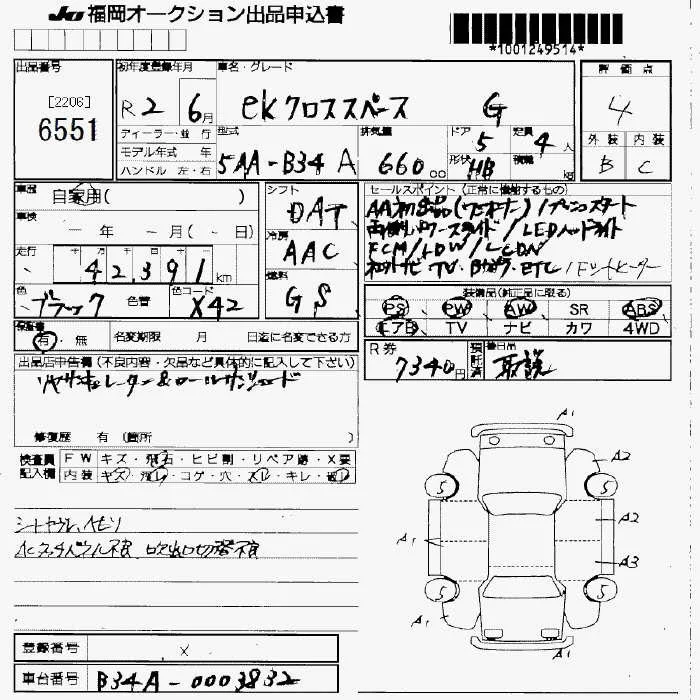 JU 福岡オークション出品申込書
*1001249514*
出品番号
[2206]
6551
初年度登録年月
R2 6月
車名・グレード
ekクロススペース G
評価点
4
外装 内装
B C
ディーラー・並行
モデル年式 年
ハンドル 左・右
型式
5AA-B34A
排気量
660cc
ドア 5
形状 HB
定員 4人
積載 kg
車歴
自家用( )
車検
年 月( ・ 日)
走行
42,391km
色
ブラック
色替
色コード
X42
シフト
DAT
冷房
AAC
燃料
GS
セールスポイント(正常に機能するもの)
両側パワースライド/LEDヘッドライト
FCM/LDW/
TV・Bカメラ・ETC/
装備品(純正品に限る)
PS PW AW SR ABS
エアB TV ナビ カワ 4WD
保証書
有・無
名変期限 月 日迄に名変できる方
R券
7340円
預託済
取説
出品店申告欄(不良内容・欠品など具体的に記入して下さい)
リヤサーキュレーター&ロールサンシェード
修復歴 有 (箇所 )
検査員記入欄
FW キズ・飛石・ヒビ割・リペア跡・X要
内装 キズ・汚レ・コゲ・穴・スレ・キレ・破レ
ACタッチパネル不良 吹出口切替不良
A1
A2
5 5
A1 A2
A3
5 5
A1 A1
A1
登録番号
×
車台番号
B34A-0003832